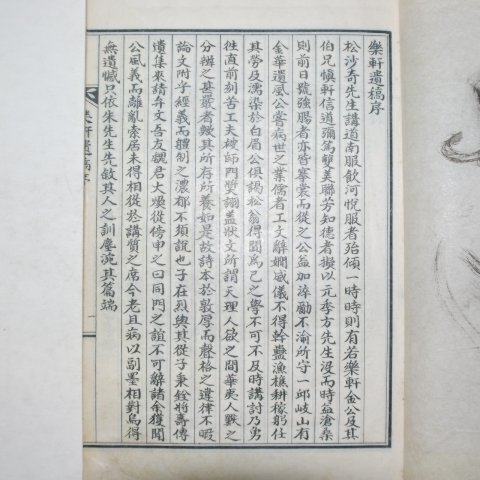 樂軒遺稿序
松沙奇先生講道南服飮河悅服者殆傾一時時則有若樂軒金公及其
伯兄愼軒信道彌篤雙美聯芳知德者擬以元季方先生沒而時益滄桑
則前日號強腸者亦皆褰裳而從之公益加淬勵不渝所守一邱岐山有
金華遺風公嘗病世之業儒者工文辭嫺威儀不得幹蠱漁樵耕稼躬任
其勞及濡染於白眉公俱謁松翁得聞爲己之學不可不及時講討乃勇
徃直前刻苦工夫被師門奬詡盖狀文所謂天理人欲之間華夷人獸之
分辨之甚嚴者緻其所存所養如是故詩本於敦厚而聲格之違律不暇
論文附予經義而體制之濃郁不須說也子在烈與其從子秉銓將壽傳
遺集來請弁文吾友觀君大煥從傍申之曰同門之誼不可解諸余獲聞
公風義而離亂索居未得相從於講質之席今老且病以副墨相對烏得
無遺憾只依朱先生先敘其人之訓塵涴其篇端
樂軒遺稿序